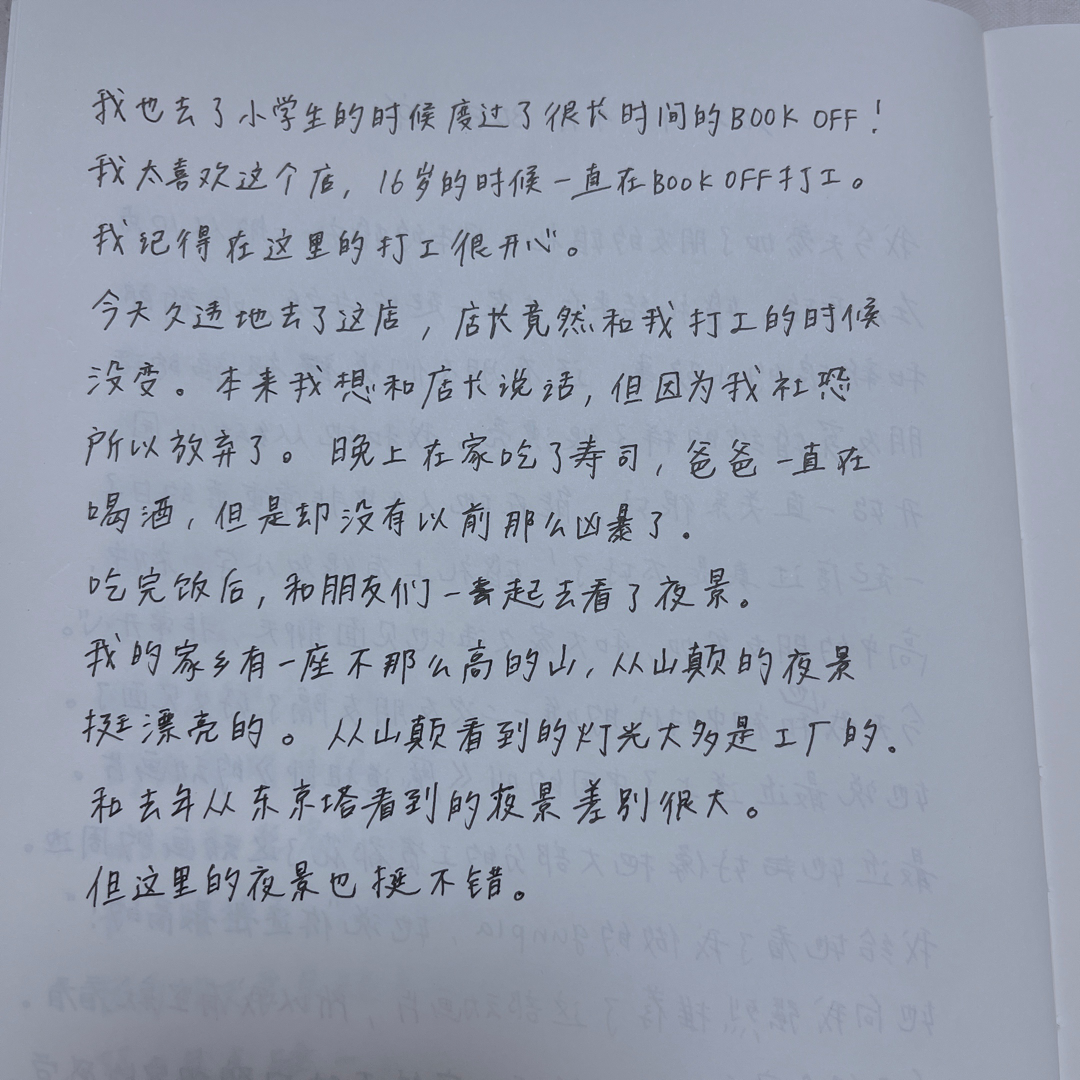 我也去了小学生的时候度过了很长时间的BOOK OFF!
我太喜欢这个店，16岁的时候一直在BOOK OFF打工。
我记得在这里的打工很开心。
今天久违地去了这店，店长竟然和我打工的时候
没变。本来我想和店长说话，但因为我社恐
所以放弃了。晚上在家吃了寿司，爸爸一直在
喝酒，但是却没有以前那么凶暴了。
吃完饭后，和朋友们一起去看了夜景。
我的家乡有一座不那么高的山，从山颠的夜景
挺漂亮的。从山颠看到的灯光大多是工厂的。
和去年从东京塔看到的夜景差别很大。
但这里的夜景也挺不错。